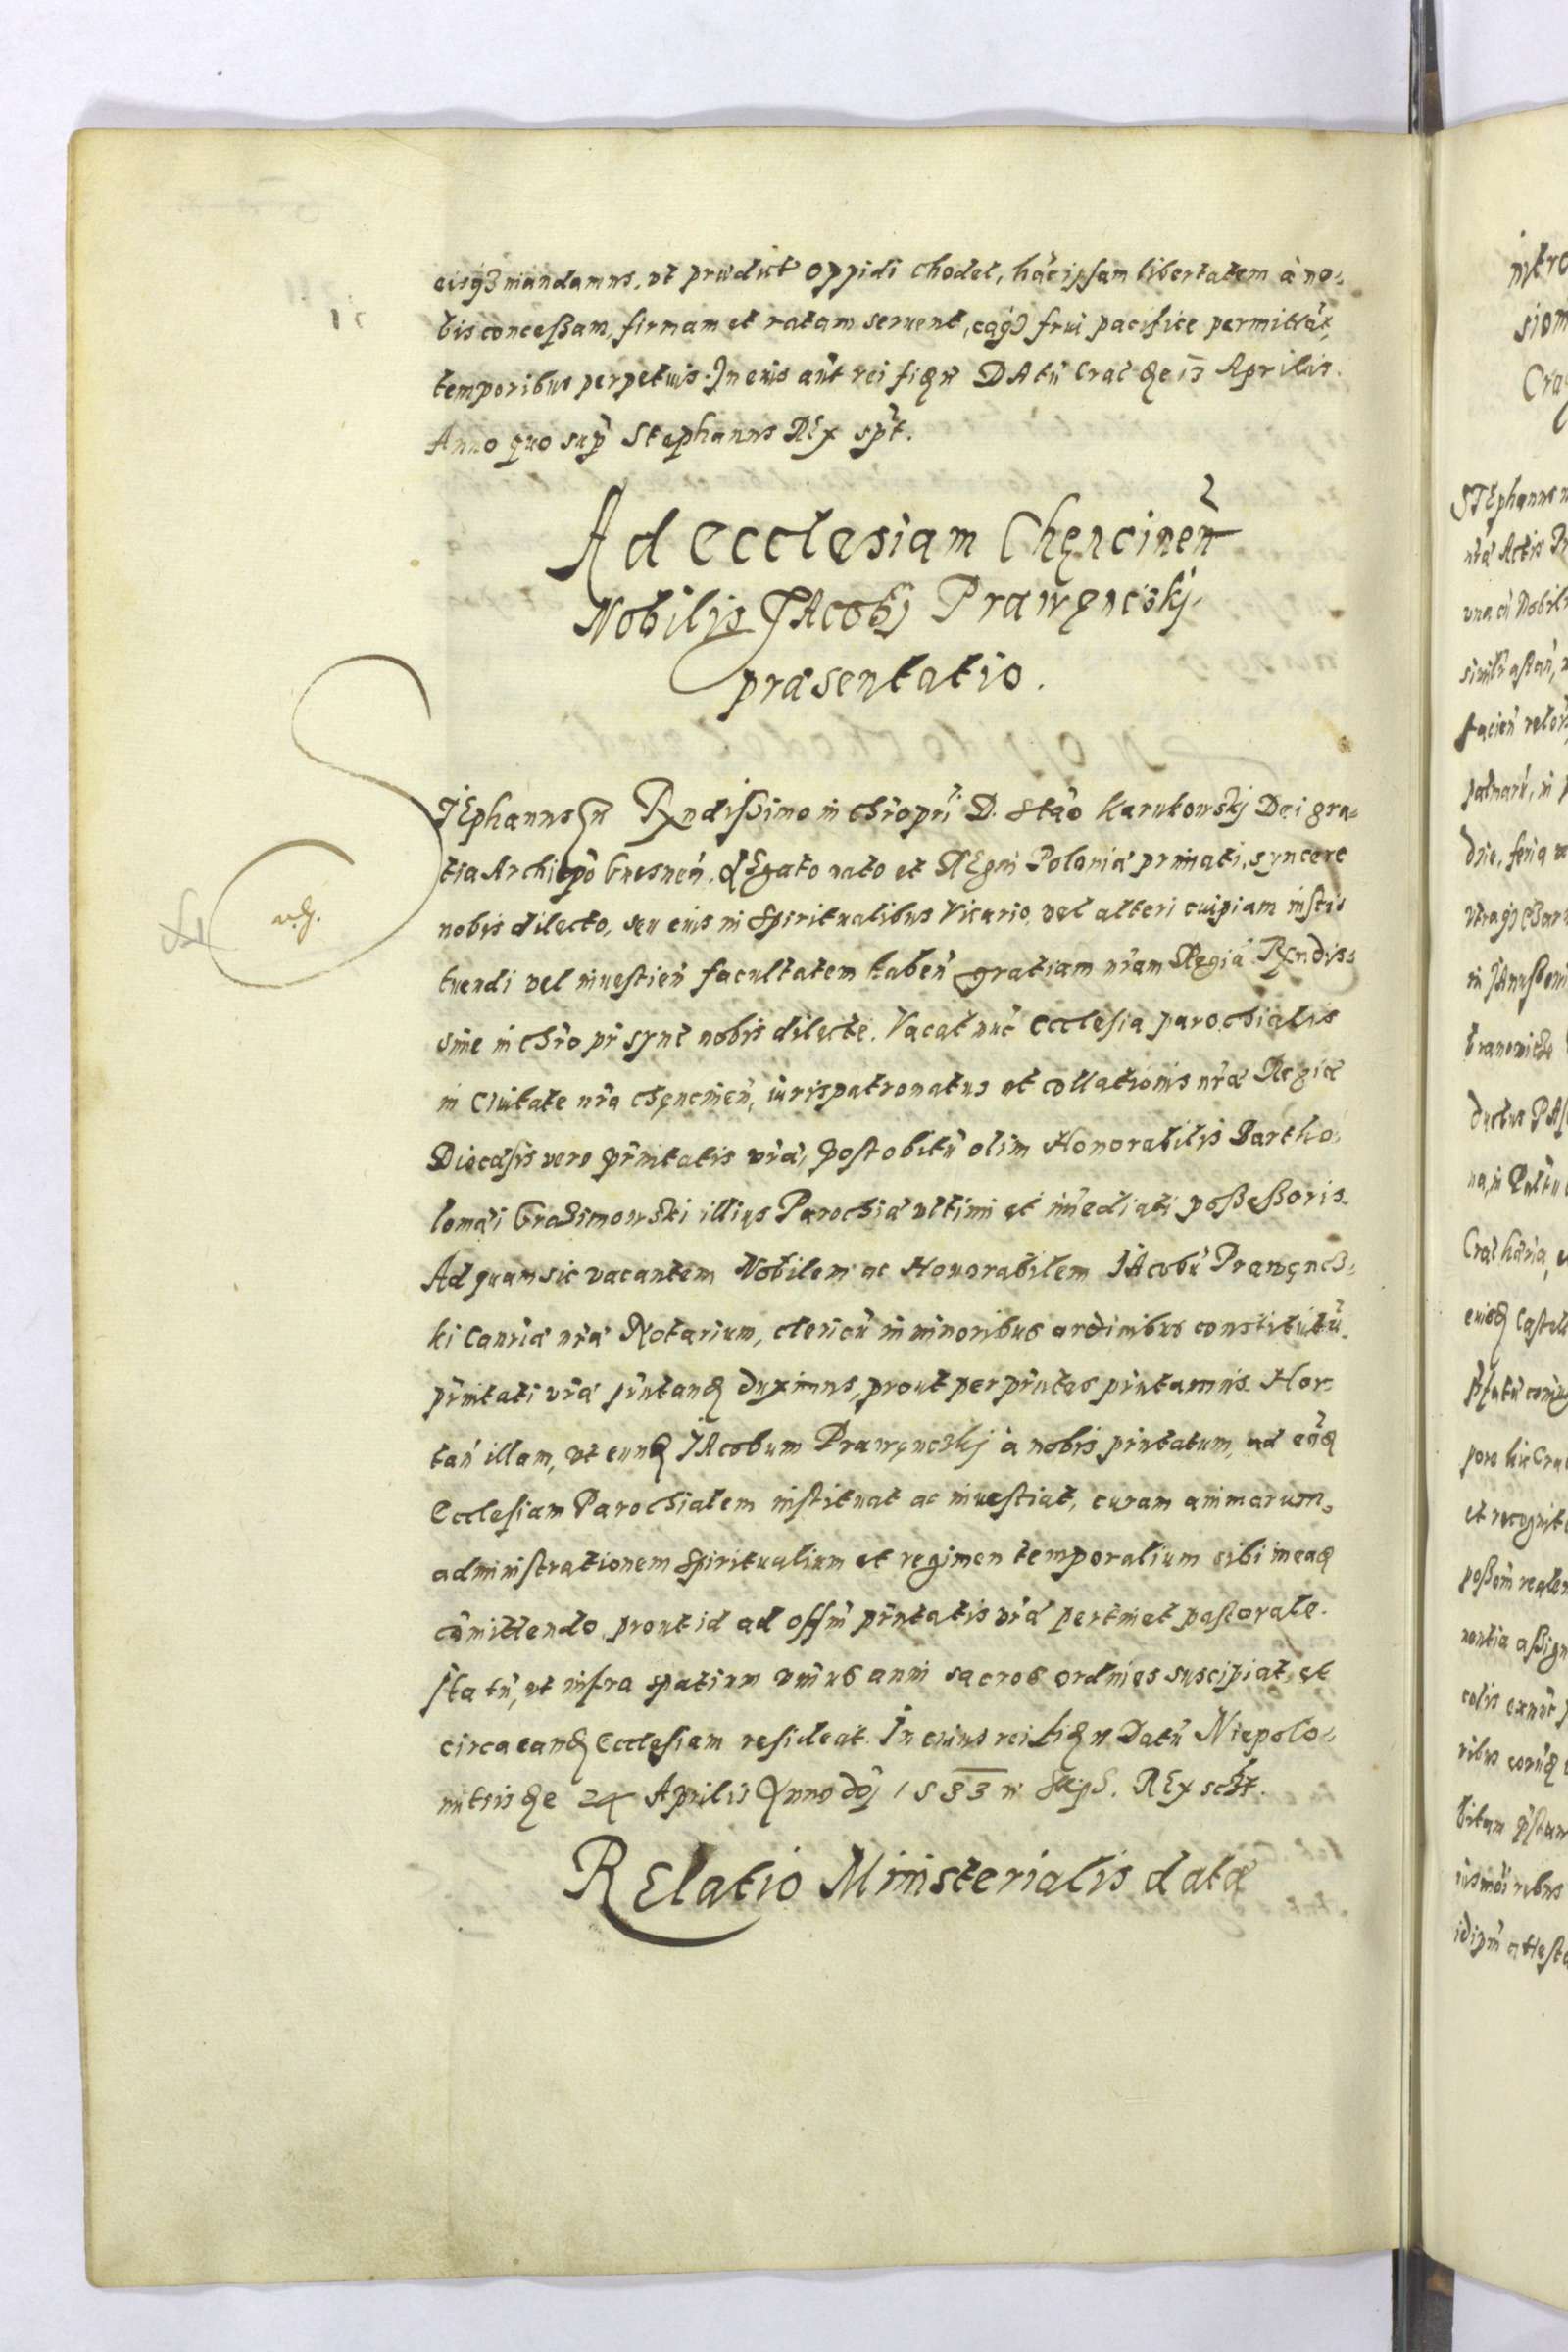 eisq3 mandamus, ut praedict oppidi Chodel, hac ipsam libertatem à no-
bis conceßam, firmam et ratam seruent, eaq3 frui pacifice permittāt,
temporibus perpetuis. In cuis aūt rei fidē DAtū Crac die 13 Aprilis.
Anno quo supᷓ Stephanus REx spt.
Ad Ecclesiam Chęncinen̄
Nobilis JAcobj Prawęncskj
præsentatio.
STEphanus Rx̄ndißimo in chr̄o pr̄i D. Stāo Karnkowskj Dei gra-
tia Archiepō Gnesnen̄. LEgato nato et REgni Poloniæ primati, syncere
nobis dilecto, seu eius in Spiritualibus Vicario, vel alteri cuipiam insti-
tuendi vel inuestien̄ facultatem haben̄ gratiam nr̄am Regiā Rx̄ndiss-
sime in chr̄o pr̄ sync nobis dilecte. Vacat nūc Ecclesia parochialis
in Ciuitate nr̄a chęncinen̄, iurispatronatus et collationis nr̄æ Regiæ
Diocæsis vero pr̄nitatis vr̄æ, post obitū olim Honorabilis Bartho-
lomæi Gradzimowski illius Parochiæ ultimi et im̄ediati poßeßoris.
Ad quam sic vacantem Nobilem ac Honorabilem JAcobū Prawęncs-
ki Canr̄iæ nr̄æ Notarium, clericū in minoribus ordinibus constitutū
pr̄nitati vr̄æ pr̄ntand duximus, prout per pr̄ntes pr̄ntamus. Hor-
tan̄ illam, ut eund JAcobum Prawęncskj à nobis pr̄ntatum, ad eād
Ecclesiam Parochialem instituat ac inuestiat, curam animarum,
administrationem Spiritualium et regimen temporalium sibi in ead
cōmittendo prout id ad offm̄ pr̄ntatis vr̄æ pertinet pastorale.
ita tn̄, ut infra spatium vnius anni sacros ordines suscipiat, et
circa eand Ecclesiam resideat. In cuius rei fidē Datū Niepolo-
mitiis die 24 Aprilis Anno dōj 1583 REx scßt.
RElatio Ministerialis datæ